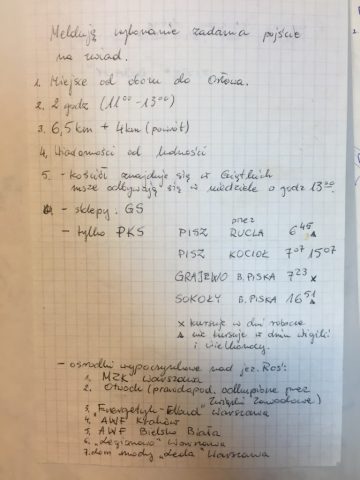 Melduję wykonanie zadania pójście
na zwiad.
1. Miejsce od obozu do Orłowa.
2. 2 godz (11⁰⁰ - 13⁰⁰)
3. 6,5 km + 4 km (powrót)
4. Wiadomości od ludności
5. - kościół znajduje się w
msze odbywają się w niedziele o godz 13⁰⁰.
- sklepy: GS
- tylko PKS
przez
PISZ RUCLA 6⁴⁵ ▲
PISZ KOCIOŁ 7⁰⁷ 15⁰⁷
GRAJEWO B. PISKA 7²³ x
SOKOŁY B. PISKA 16⁵¹ ▲
x kursuje w dni robocze
▲ nie kursuje w dniu wigilii
i Wielkanocy.
- ośrodki wypoczynkowe nad jez. Roś:
1. MZK Warszawa
2. Otwock (prawdopod. odkupione przez
Związki Zawodowe)
3. "Energetyk - " Warszawa
4. AWF Kraków
5. AWF Bielsko Biała
6. "Legionowo" Warszawa
7. dom mody "Leda" Warszawa